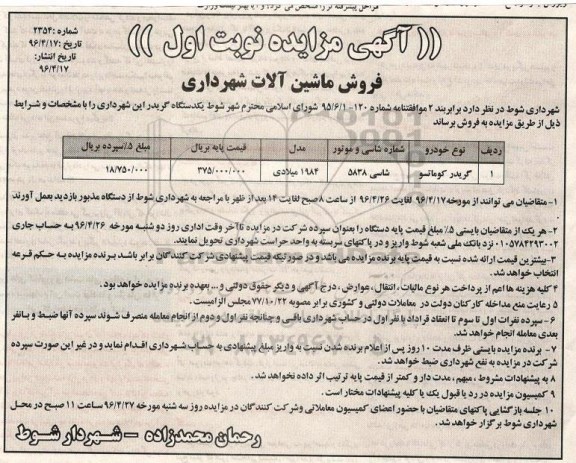 شماره :۲۳۵۴
تاریخ :۹۶/۴/۱۷
تاریخ انتشار:
۹۶/۴/۱۷
(( آگهی مزایده نوبت اول ))
فروش ماشین آلات شهرداری
شهرداری شوط در نظر دارد برابربند ۲ موافقتنامه شماره ۱۲۰- ۹۵/۶/۱ شورای اسلامی محترم شهر شوط یکدستگاه گریدر این شهرداری را با مشخصات و شرایط
ذیل از طریق مزایده به فروش برساند
ردیف نوع خودرو شماره شاسی و موتور مدل قیمت پایه بریال مبلغ ۵٪سپرده بریال
۱ گریدر کوماتسو شاسی ۵۸۳۸ ۱۹۸۴ میلادی ۳۷۵/۰۰۰/۰۰۰ ۱۸/۷۵۰/۰۰۰
۱- متقاضیان می توانند از مورخه ۹۶/۴/۱۷ لغایت ۹۶/۴/۲۶ از ساعت ۸صبح لغایت ۱۴ بعد از ظهر با مراجعه به شهرداری شوط از دستگاه مذبور بازدید بعمل آورند
.
۲- هر یک از متقاضیان بایستی ۵٪ مبلغ قیمت پایه دستگاه را بعنوان سپرده شرکت در مزایده تا آخر وقت اداری روز دو شنبه مورخه ۹۶/۴/۲۶ به حساب جاری
۰۱۰۵۷۸۴۲۹۳۰۰۲ نزد بانک ملی شعبه شوط واریز و در پاکتهای سربسته به واحد حراست شهرداری تحویل نمایند.
۳-بیشترین قیمت ارائه شده نسبت به قیمت پایه برنده مزایده می باشد و در صورتیکه قیمت پیشنهادی شرکت کنندگان برابر باشد برنده مزایده به حکم قرعه
انتخاب خواهد شد.
۴ کلیه هزینه ها اعم از پرداخت هر نوع مالیات ، انتقال ، عوارض ، درج آگهی و دیگر حقوق دولتی و... بعهده برنده مزایده خواهد بود.
۵ رعایت منع مداخله کارکنان دولت در معاملات دولتی و کشوری برابر مصوبه ۷۷/۱۰/۲۲ مجلس الزامیست.
۶- سپرده نفرات اول تا سوم تا انعقاد قراداد با نفر اول در حساب شهرداری باقی و چنانچه نفر اول و دوم از انجام معامله منصرف شوند سپرده آنها ضبط و بانفر
بعدی معامله انجام خواهد شد.
۷- برنده مزایده بایستی ظرف مدت ۱۰ روز پس از اعلام برنده شدن نسبت به واریز مبلغ پیشنهادی به حساب شهرداری اقدام نماید و در غیر این صورت سپرده
شرکت در مزایده به نفع شهرداری ضبط خواهد شد.
۸ به پیشنهادات مشروط ، مبهم ، مدت دار و کمتر از قیمت پایه ترتیب اثر داده نخواهد شد.
۹ کمیسیون مزایده در رد یا قبول یک یا کلیه پیشنهادات مختار است .
۱۰ جلسه بازگشایی پاکتهای متقاضیان با حضور اعضای کمیسیون معاملاتی وشرکت کنندگان در مزایده روز سه شنبه مورخه ۹۶/۴/۲۷ ساعت ۱۱ صبح در محل
شهرداری شوط برگزار خواهد شد.
رحمان محمدزاده - شهردار شوط